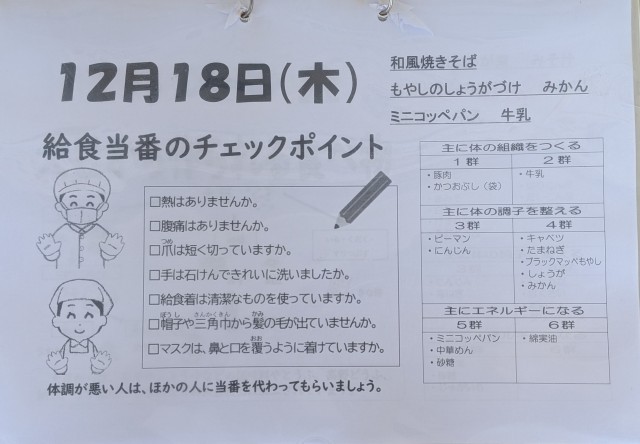 12月18日(木)
和風焼きそば
もやしのしょうがづけ　みかん
ミニコッペパン　牛乳
給食当番のチェックポイント
□熱はありませんか。
□腹痛はありませんか。
□爪は短く切っていますか。
□手は石けんできれいに洗いましたか。
□給食着は清潔なものを使っていますか。
□帽子や三角巾から髪の毛が出ていませんか。
□マスクは、鼻と口を覆うように着けていますか。
体調が悪い人は、ほかの人に当番を代わってもらいましょう。
主に体の組織をつくる
1群　2群
・豚肉　・牛乳
・かつおぶし（袋）
主に体の調子を整える
3群　4群
・ピーマン　・キャベツ
・にんじん　・たまねぎ
・ブラックマッペもやし
・しょうが
・みかん
主にエネルギーになる
5群　6群
・ミニコッペパン　・綿実油
・中華めん
・砂糖